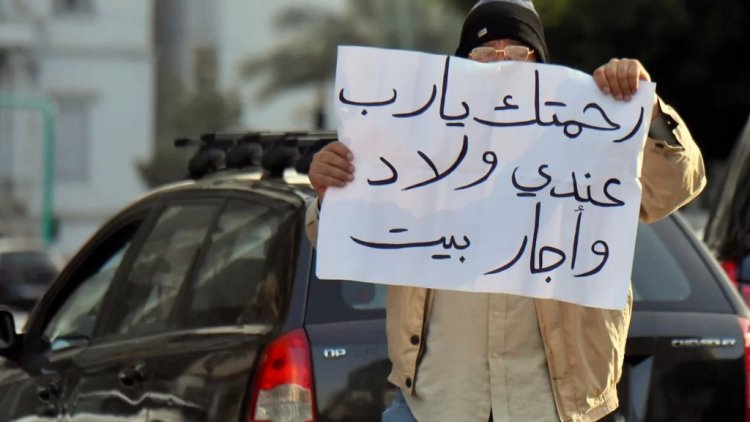 رحمتك يارب
عندي ولاد
وأجار بيت
CHEVROLET